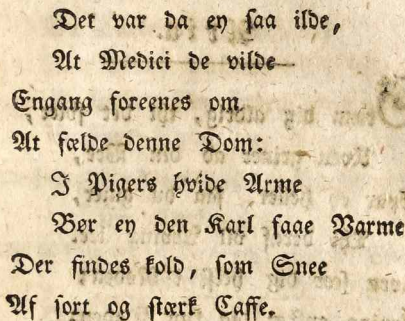 Det var da ey saa ilde,
At Medici de vilde
Engang foreenes om
At fælde denne Dom:
I Pigers hvide Arme
Bør ey den Karl faae Varme
Der findes kold, som Snee
Af sort og stærk Caffe.